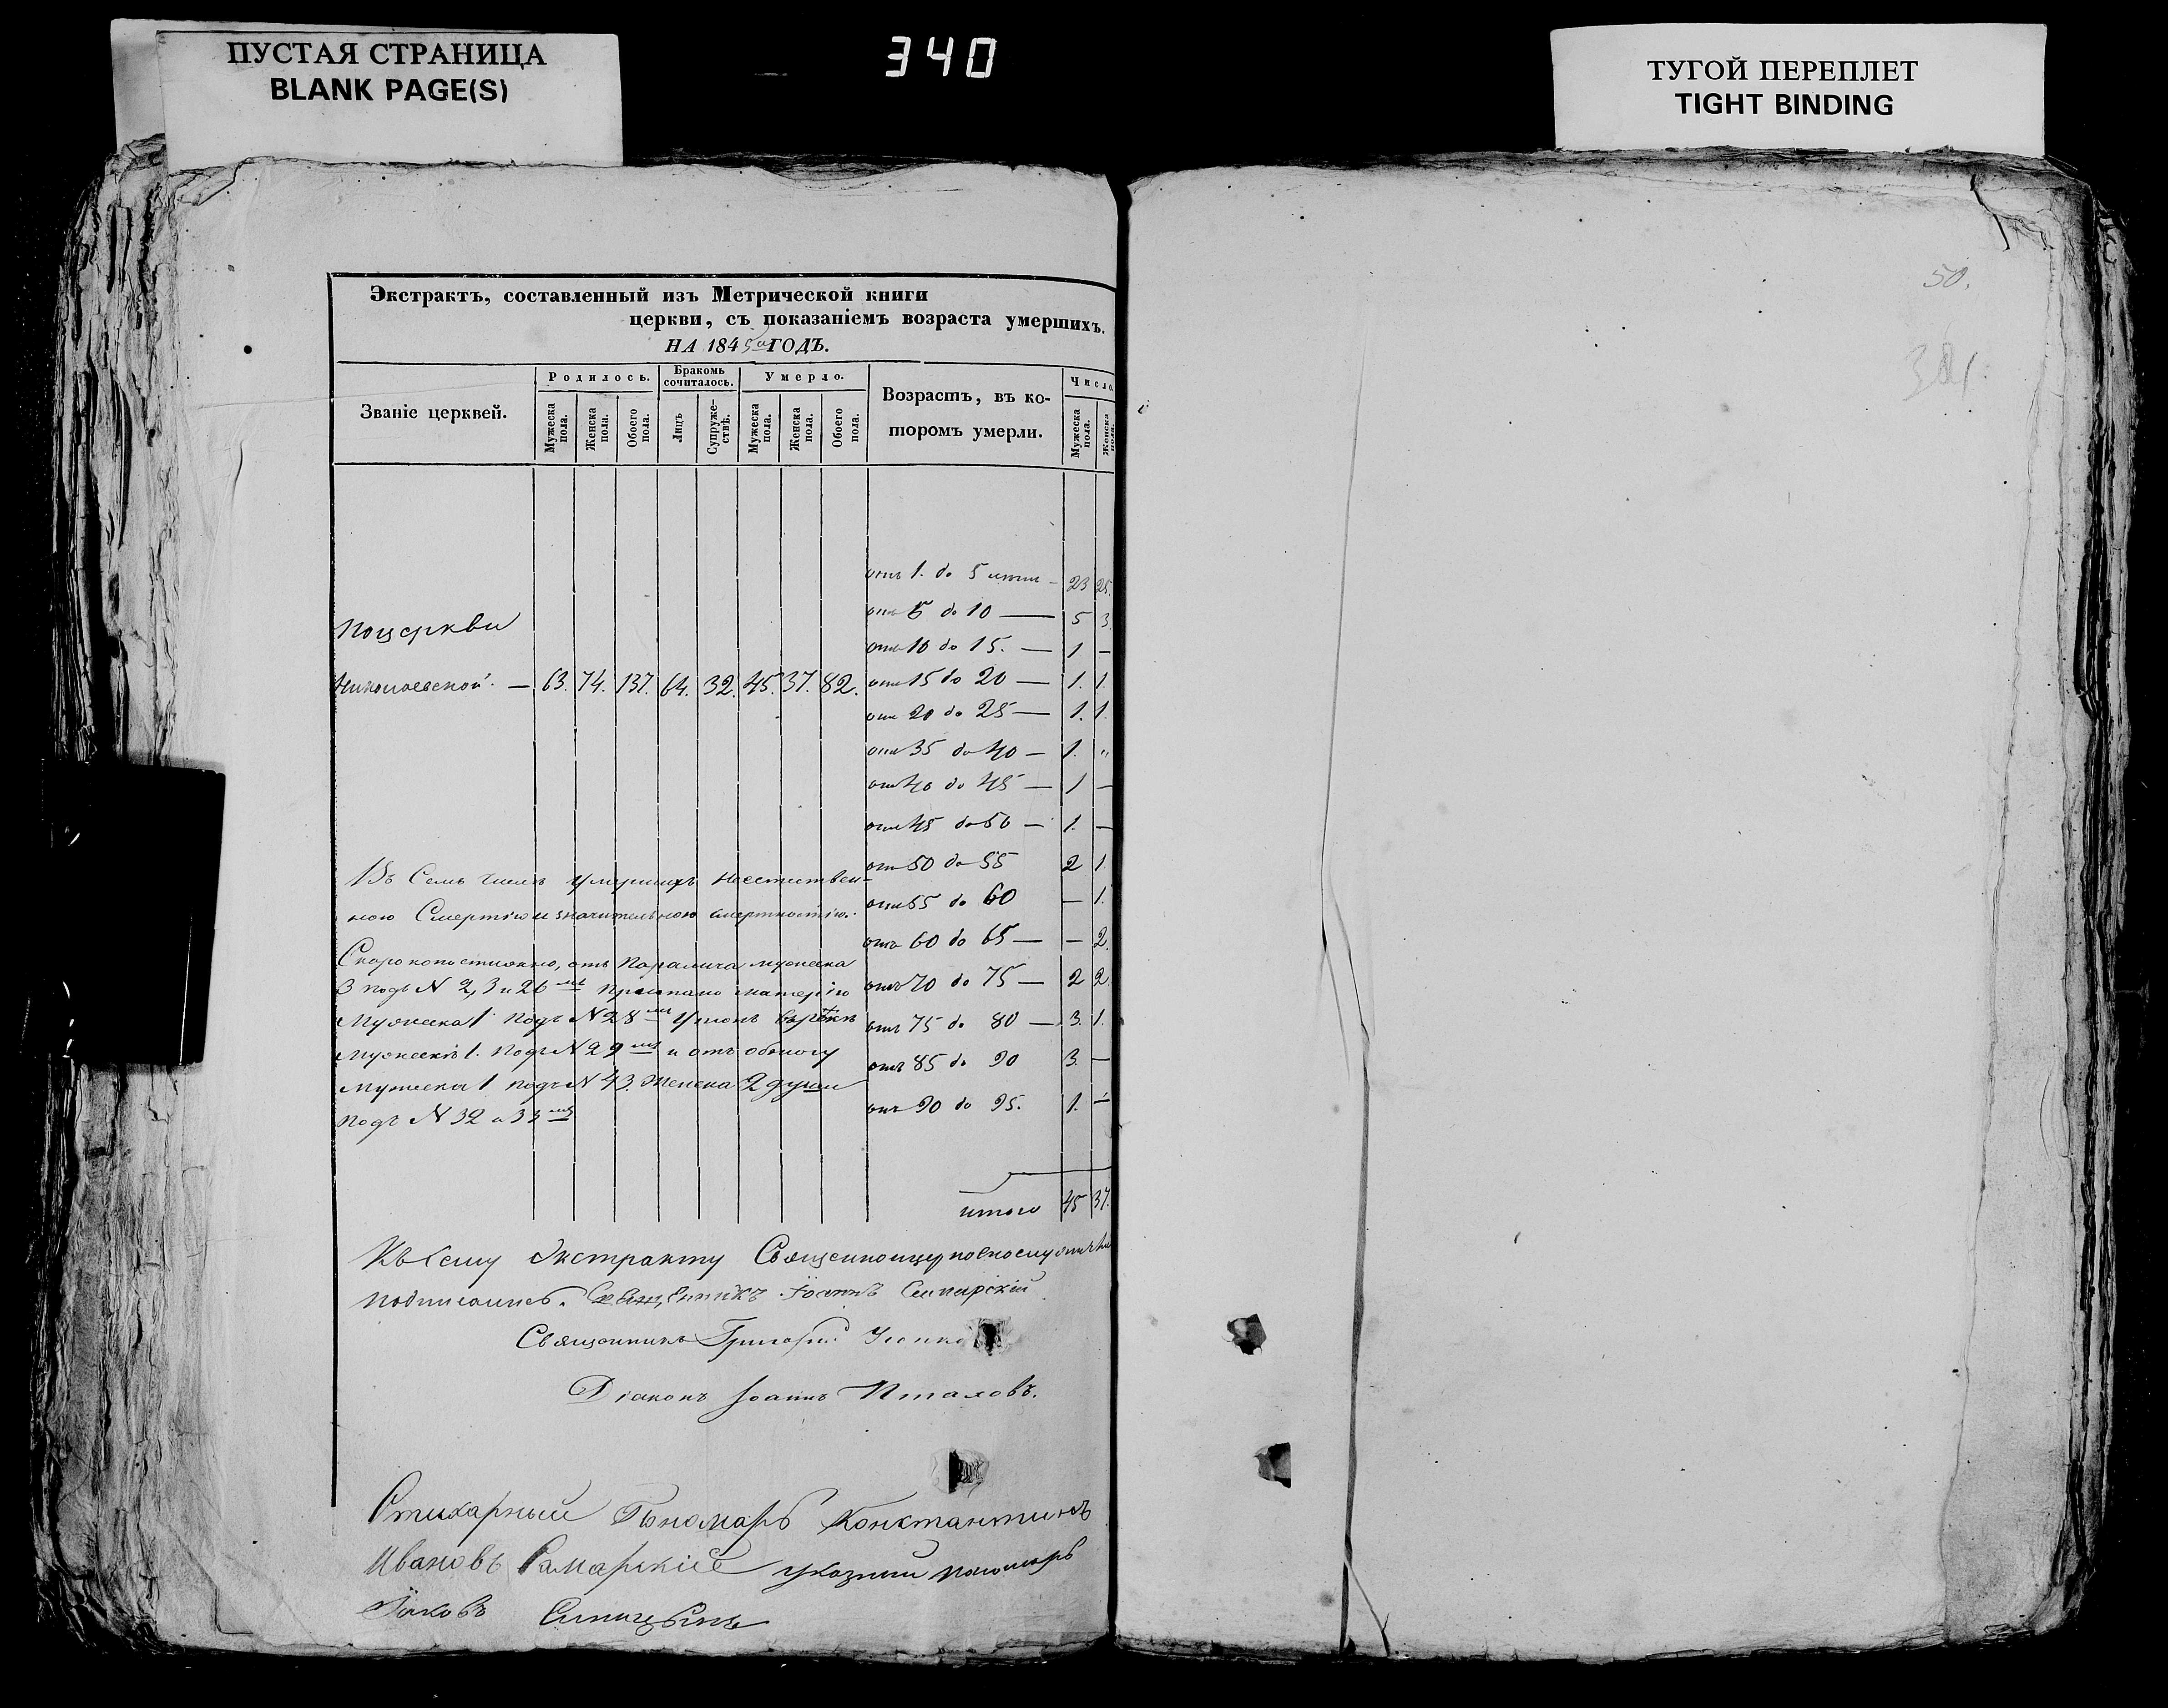 ПУСТАЯ СТРАНИЦА
BLANK PAGE(S)
340
ТУГОЙ ПЕРЕПЛЕТ
TIGHT BINDING
50.
Экстрактъ, составленный изъ Метрической книги
церкви, съ показаніемъ возраста умершихъ.
НА 1845й ГОДЪ.
Званіе церквей.
Родилось.
Бракомъ сочиталось.
Умерло.
Возрастъ, въ которомъ умерли.
Число.
Мужеска пола.
Женска пола.
Обоего пола.
Лицъ
Супружествъ.
Мужеска пола.
Женска пола.
Обоего пола.
Мужеска пола.
Женска пола.
отъ 1. до 5 летъ — 23 25.
отъ 5 до 10 — 5 3.
По церкви
отъ 10 до 15. — 1 —
Николаевской. — 63. 74. 137. 64. 32. 45. 37. 82.
отъ 15 до 20 — 1. 1.
отъ 20 до 25 — 1. 1.
отъ 35 до 40 — 1. "
отъ 40 до 45 — 1 —
отъ 45 до 50 — 1. —
отъ 50 до 55 2 1.
отъ 55 до 60 — 1.
отъ 60 до 65 — — 2.
отъ 70 до 75 — 2 2
отъ 75 до 80 — 3. 1.
отъ 85 до 90 3. —
отъ 90 до 95. 1. —
итого 45 37.
Въ Семъ числѣ умершихъ неестествен-
ною Смертію и значительною смертностію.
Скоропостижно, отъ Паралича мужеска
3 подъ N 2, 3 и 26 мъ приспано матерію
Мужеска 1 подъ N 28 мъ
Мужескъ 1. подъ N 29 мъ и отъ
Мужеска 1 подъ N 43. Женска 2 души
подъ N 32 и 33 мъ
Къ сему Экстракту Священноцерковнослужители
подписались. Священникъ Іоаннъ
Священникъ Григорій
Діаконъ Іоаннъ Пталовъ.
Стихарный Пономарь Константинъ
Ивановъ Самарскій указный пономарь
Іаковъ Синицынъ